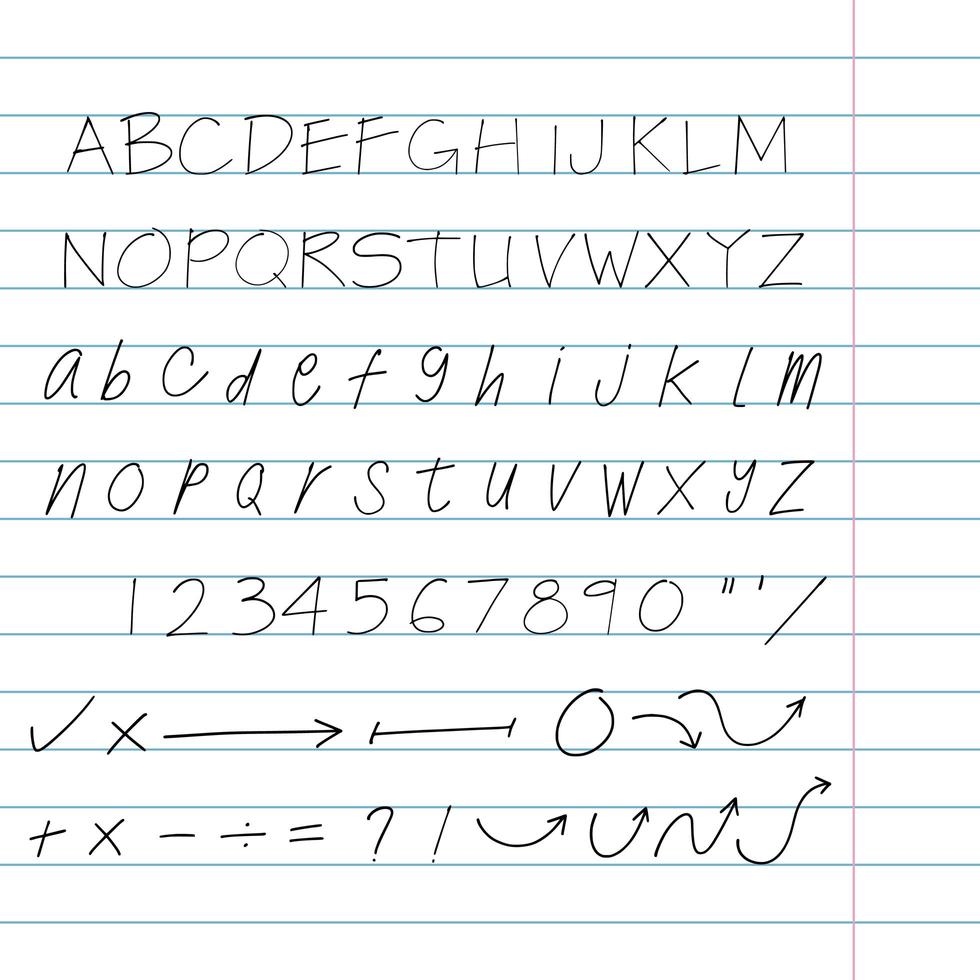 ABCDEFGHIJKLM
NOPQRSTUVWXYZ
a b c d e f g h i j k l m
n o p q r s t u v w x y z
1234567890 " ' /
✓ × → ⊢⊣ O ⤵ ↝
+ × − ÷ = ? ! ⤴ ⤴ ⤴ ⤴